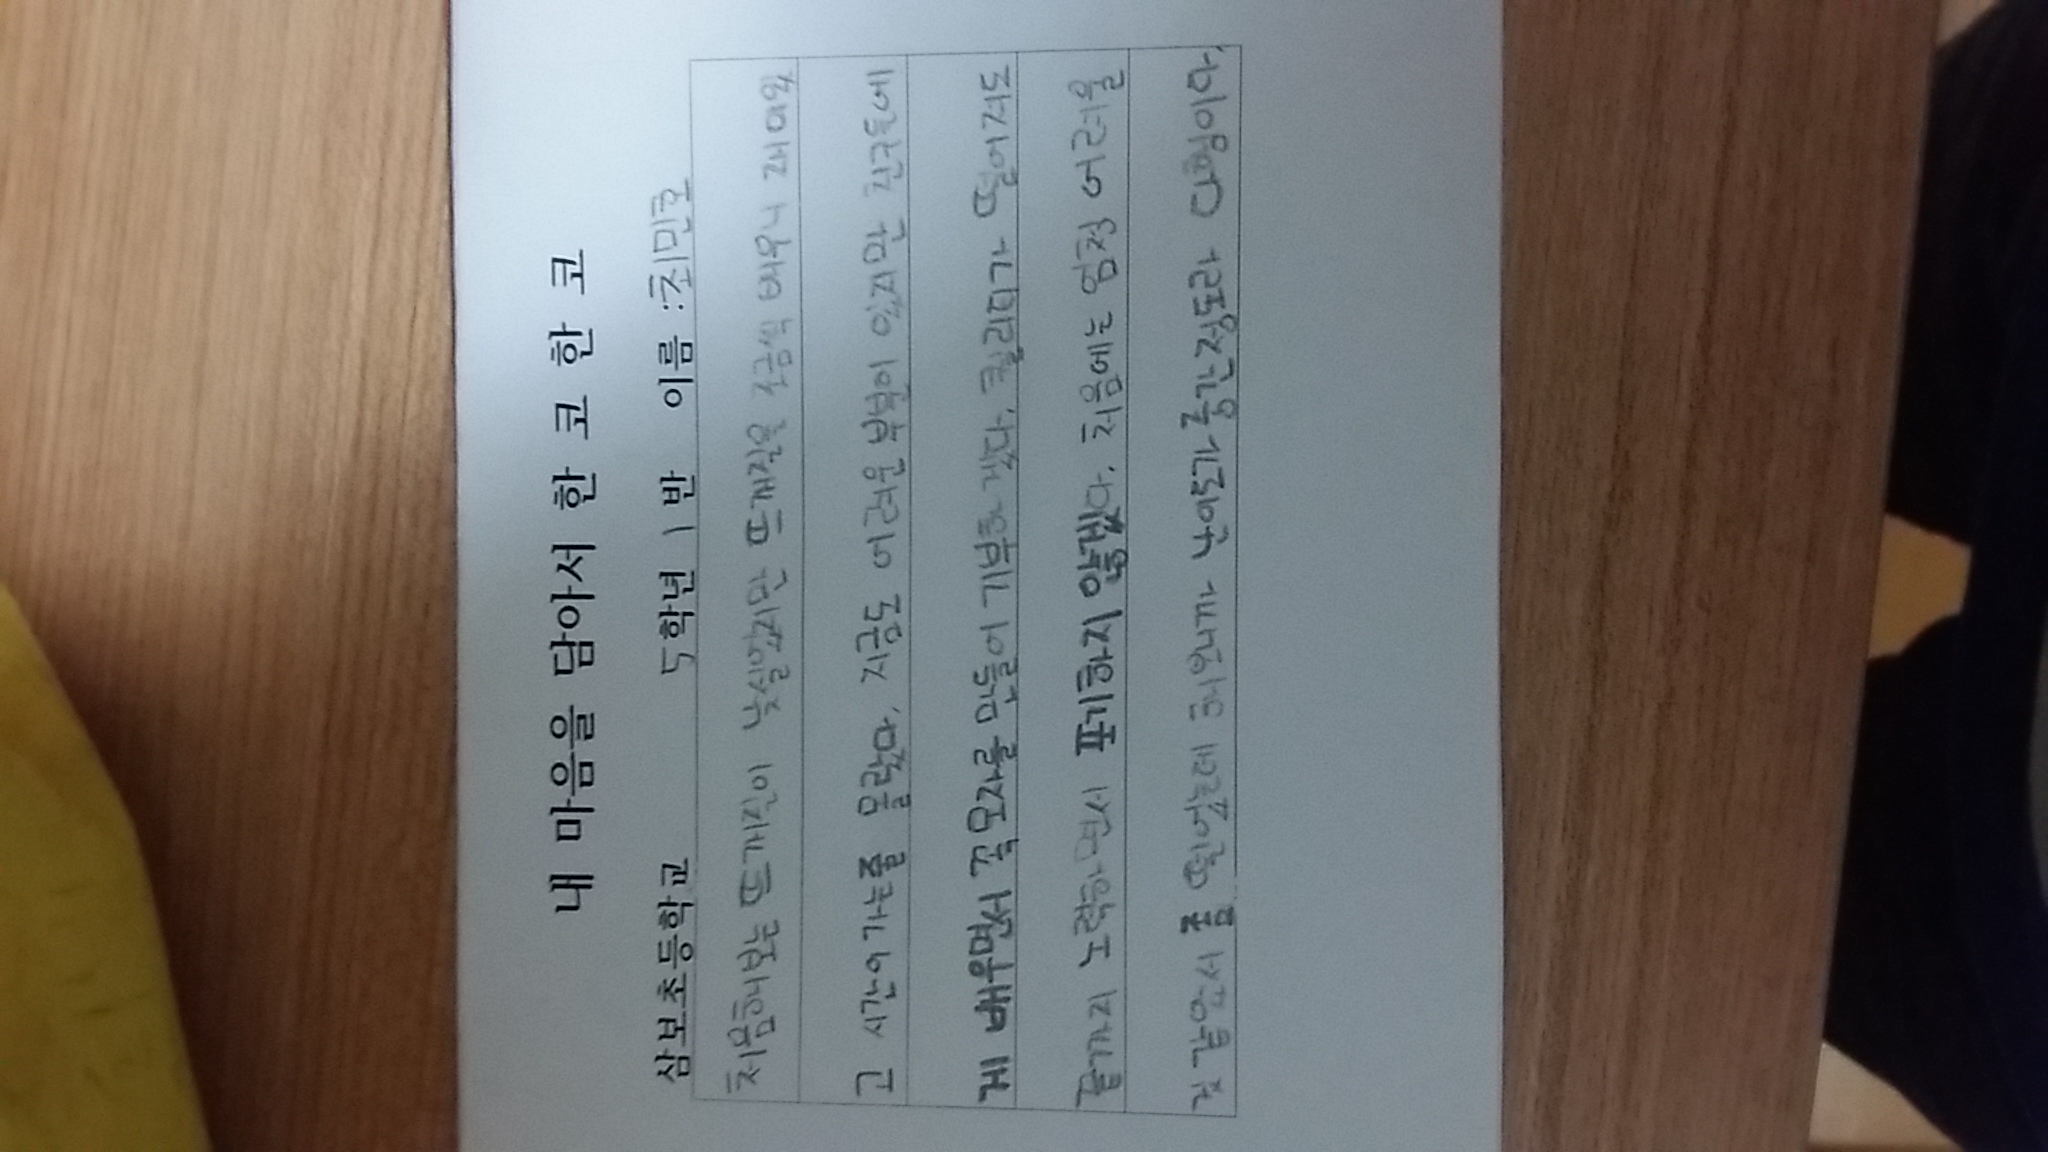 내 마음을 담아서 한 코 한 코
삼보초등학교 5학년 1반 이름 : 최민호
처음해보는 뜨개질이 낯설었지만 뜨개질을 조금씩 배우니 재미있
고 시간이 가는줄 몰랐다. 지금도 어려운 부분이 있지만 친구들에
게 배우면서 꼭 모자를 만들어 기부하겠다. 퀄리티가 떨어져도
끝까지 노력하면서 포기하지 않겠다. 처음에는 엄청 어려울
것 같았서 좀 떨었는데 해보니까 난이도가 중간정도라 다행이다.